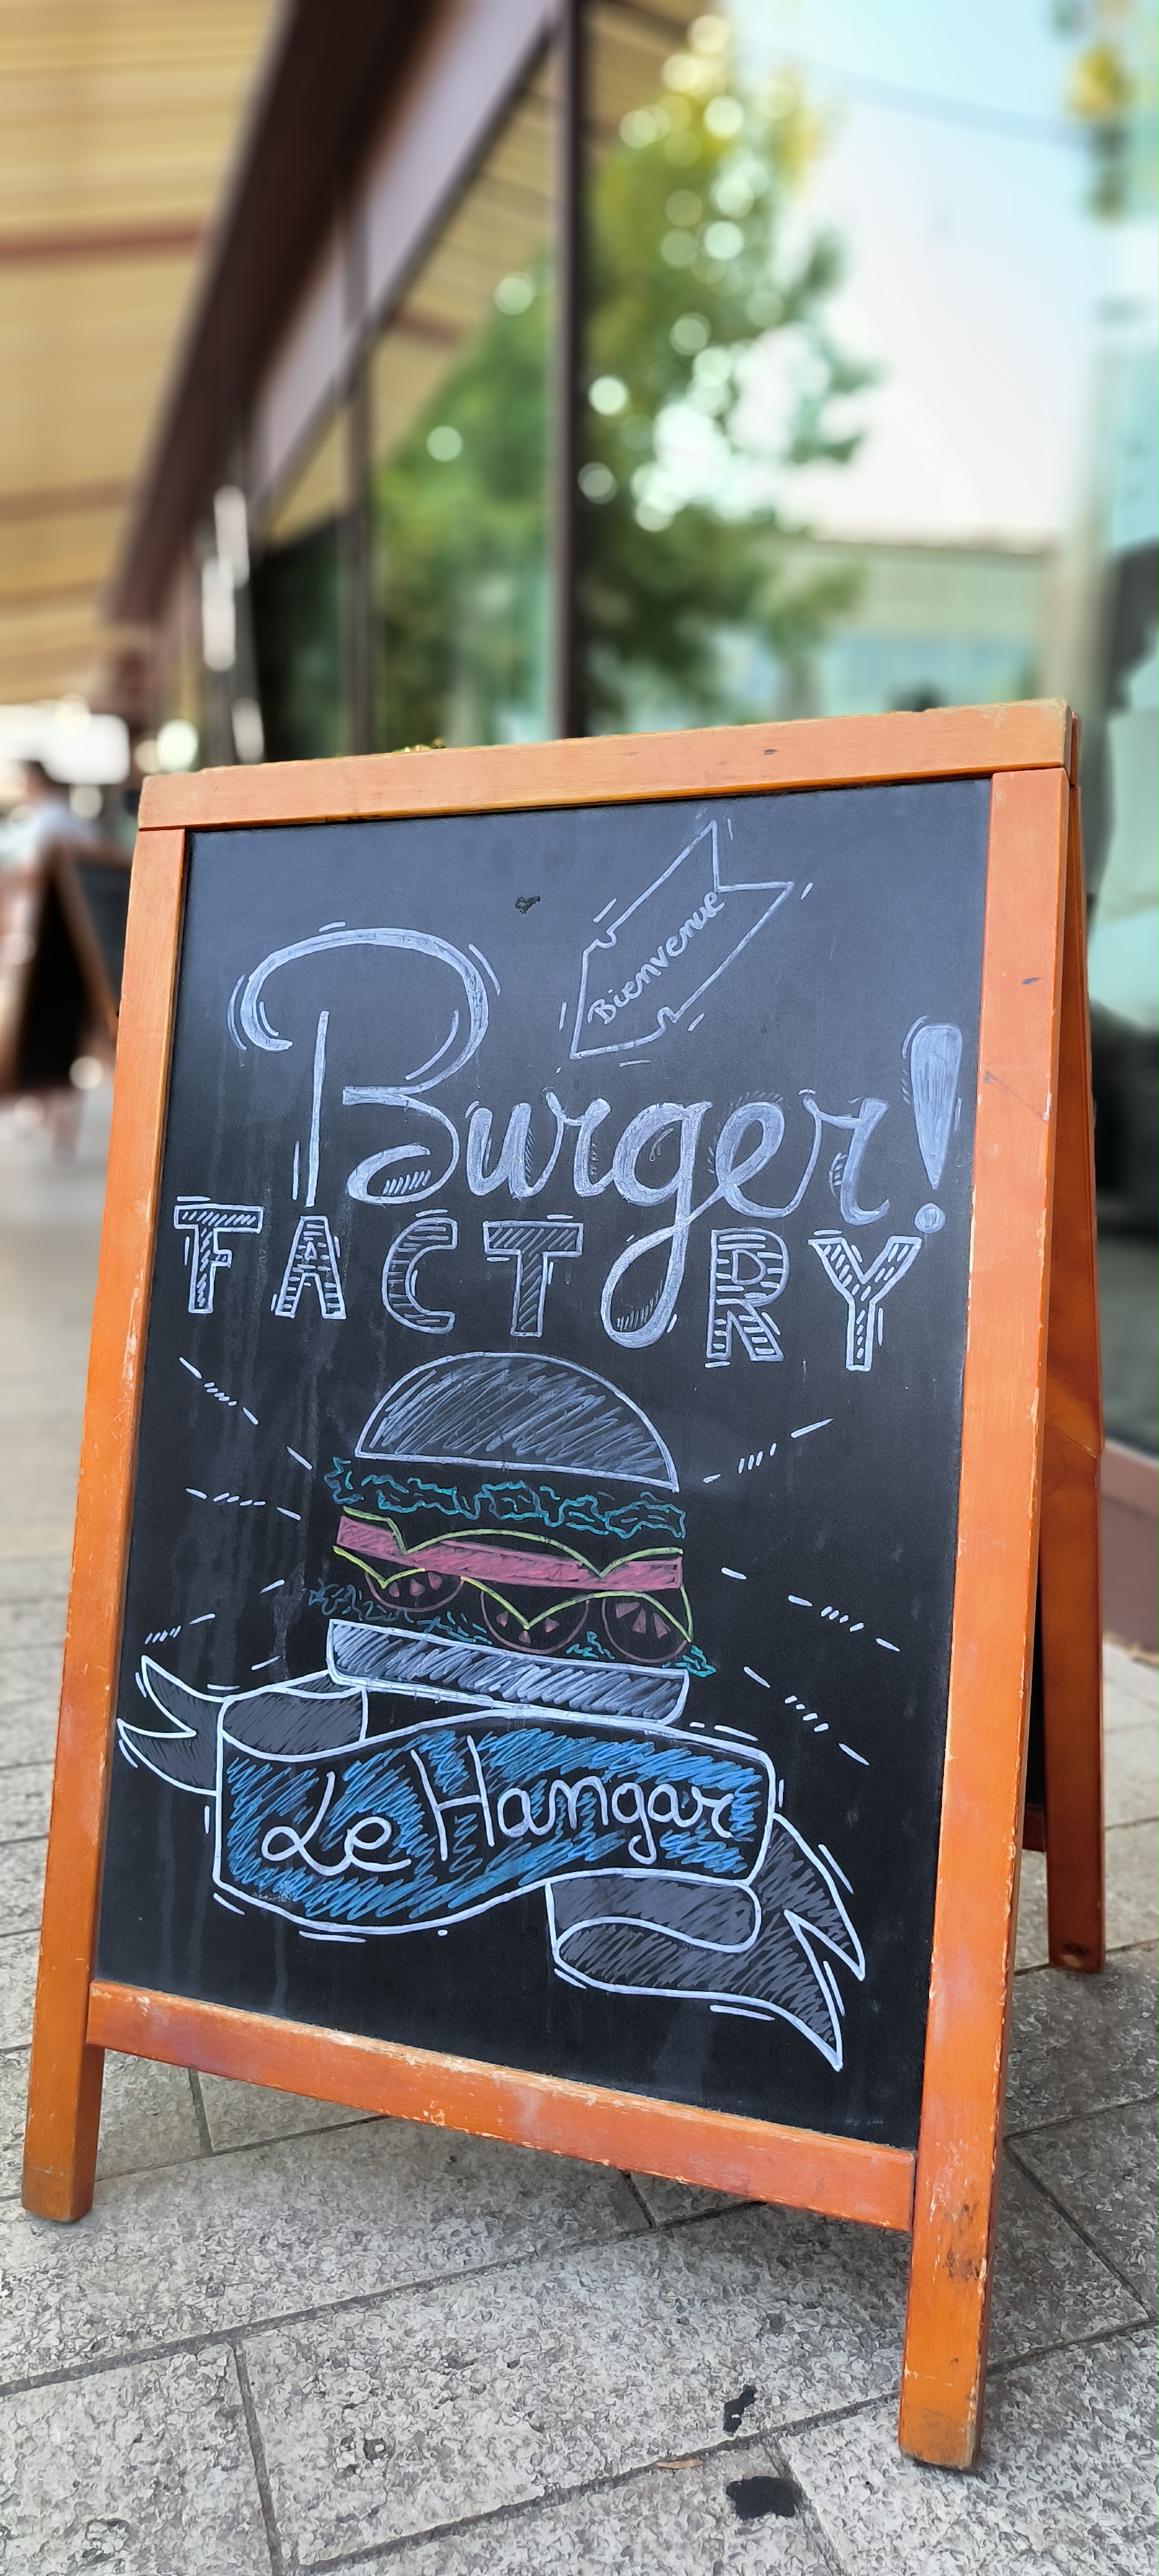 Bienvenue
Burger!
FACTORY
Le Hangar